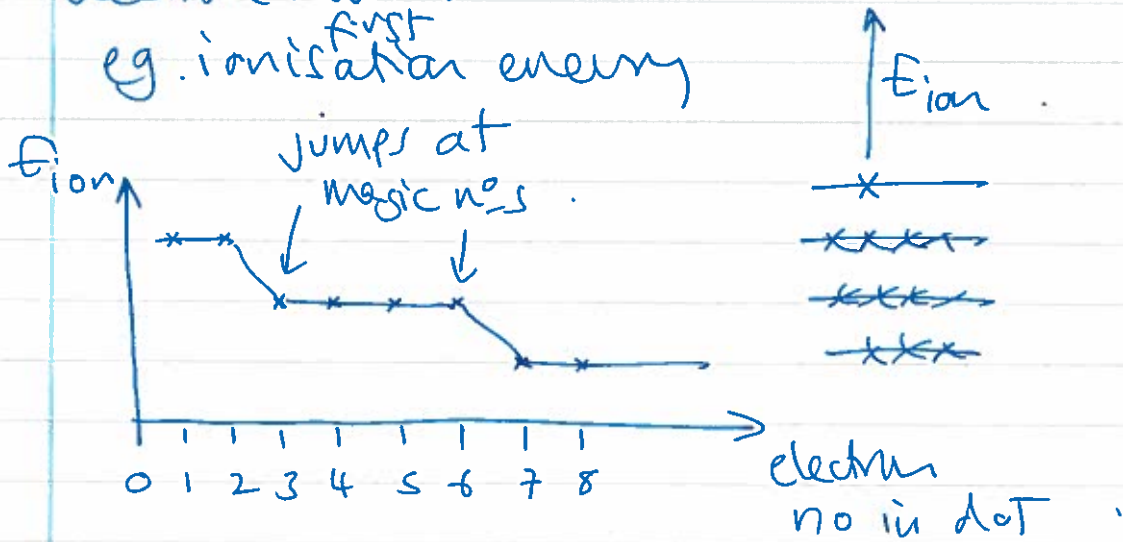 first
eg. ionisation energy
Eion
jumps at
magic nos.
Eion
0 1 2 3 4 5 6 7 8
electron
no in dot